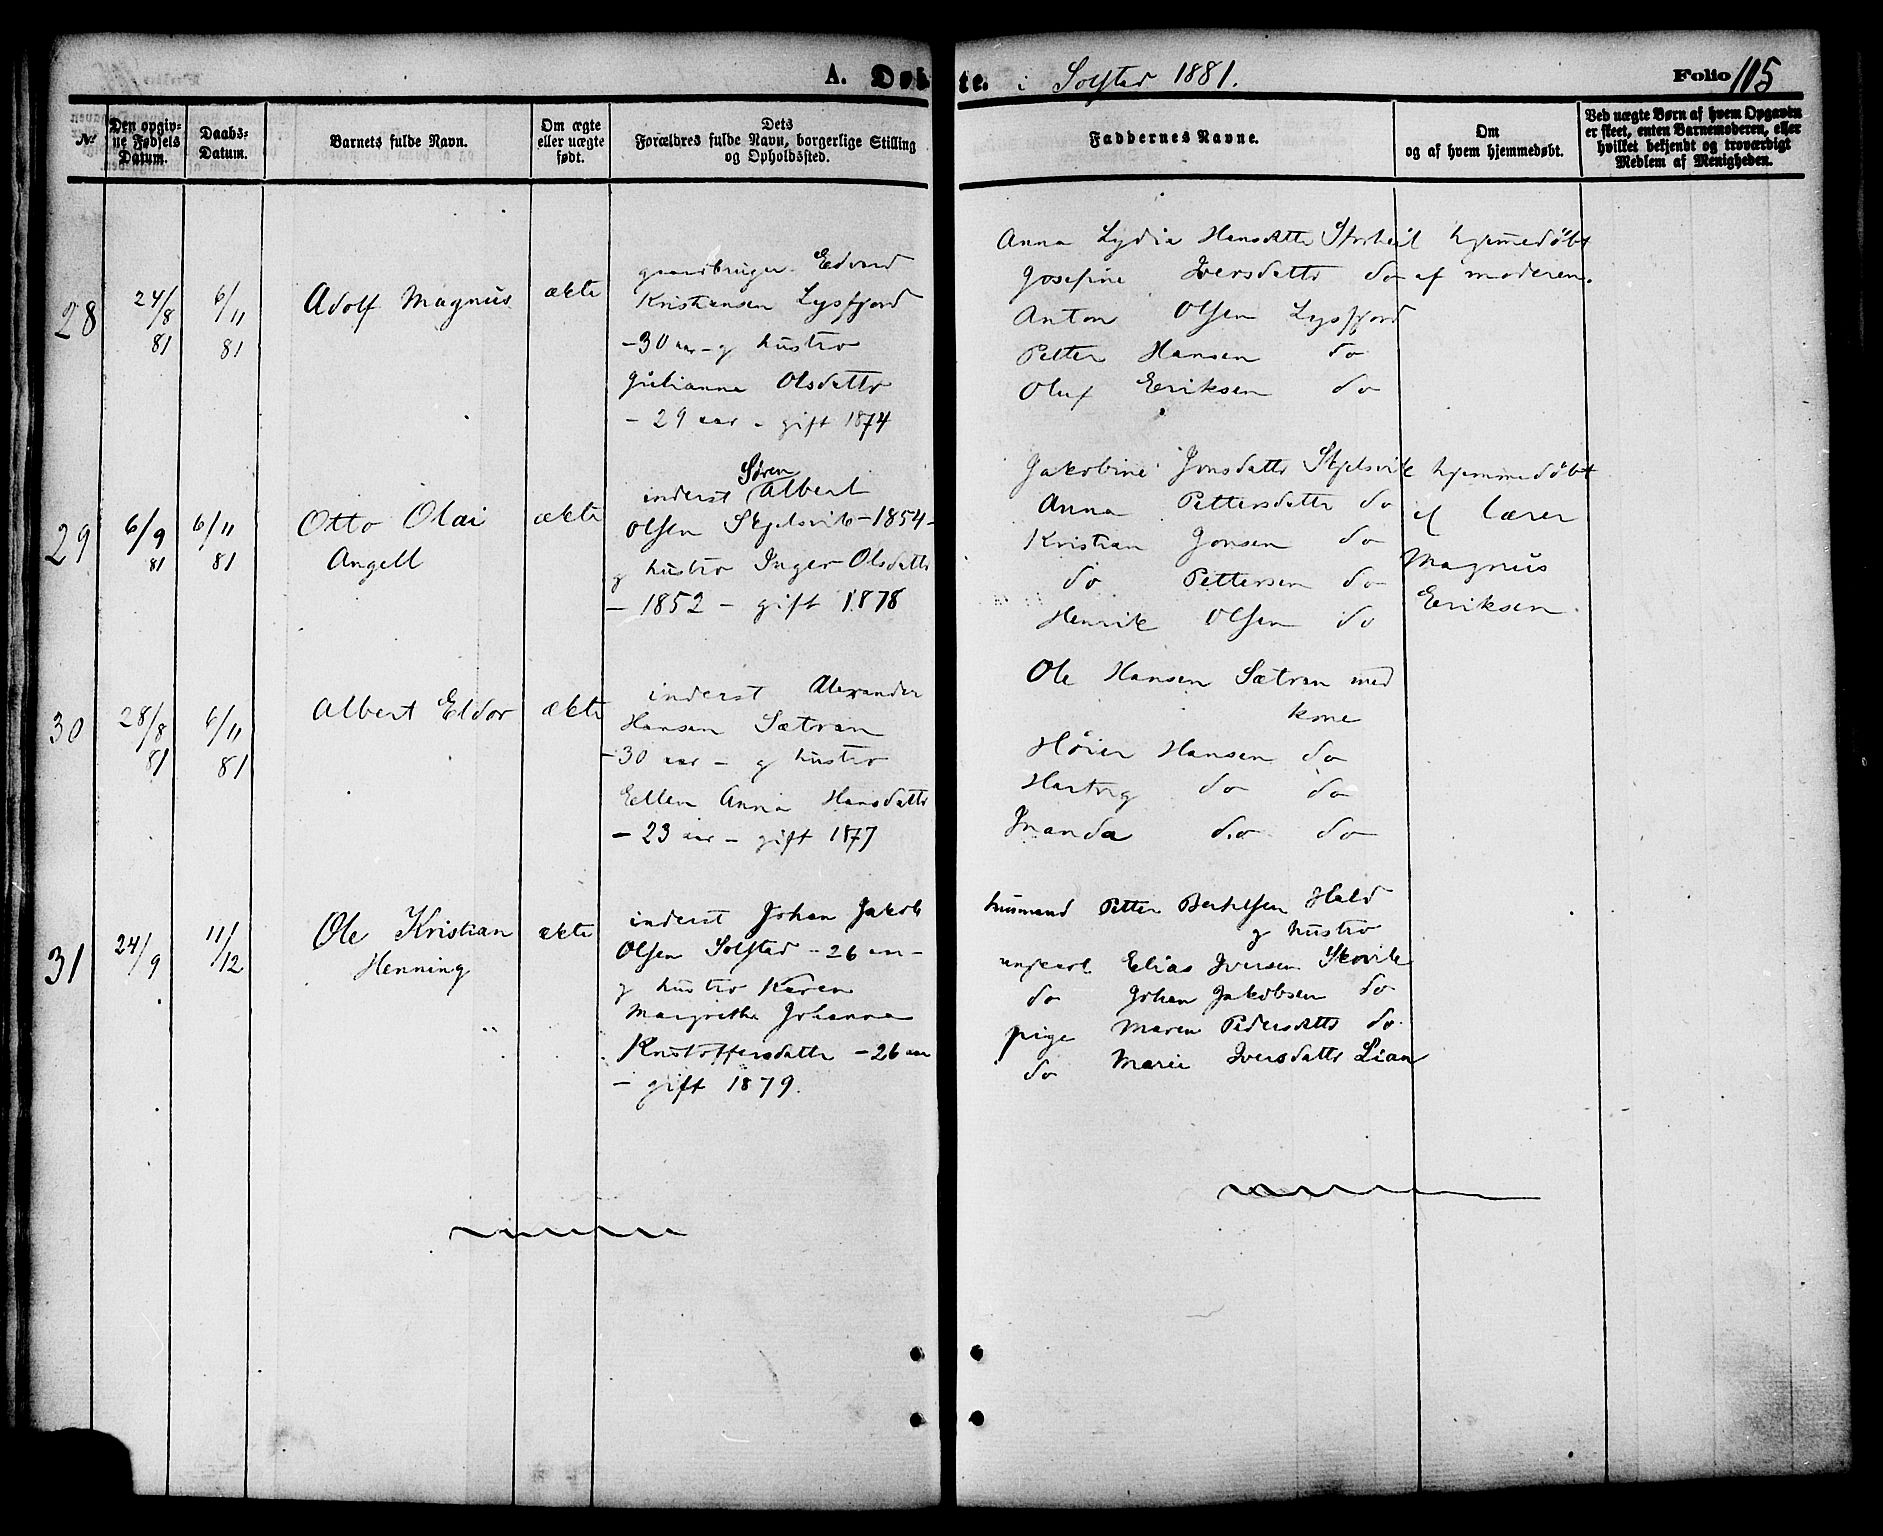 A. Døbte. i Solstad 1881. Folio 105
No
Den opgivne Fødsels Datum.
Daabs-Datum.
Barnets fulde Navn.
Om ægte eller uægte født.
Dets Forældres fulde Navn, borgerlige Stilling og Opholdssted.
Faddernes Navne.
Om og af hvem hjemmedøbt.
Ved uægte Børn af hvem Opgaven er skeet, enten Barnemoderen, eller hvilket bekjendt og troværdigt Medlem af Menigheden.
28
24/8 81
6/11 81
Adolf Magnus
ækte
gaardbruger Edvard
Kristiansen Lysfjord
- 30 aar - g hustro
Julianna Olsdattr
- 29 aar - gift 1874
Anna Lydia Hansdattr
Josefine Iversdattr do
Anton Olsen Lysfjord
Petter Hansen do
Oluf Eriksen do
hjemmedøbt
af moderen.
29
6/9 81
6/11 81
Otto Olai
Angell
ækte
inderst Søren Albert
Olsen Skjelsvik - 1854 -
g hustro Inger Olsdattr
- 1852 - gift 1878
Jakobine Jonsdattr Skjelsvik
Anna Pettersdattr do
Kristian Jonsen do
do Pettersen do
Henrik Olsen do
hjemmedøbt
af lærer
Magnus
Eriksen.
30
28/8 81
6/11 81
Albert Eldor
ækte
inderst Alexander
Hansen Sætran
- 30 aar - g hustro
Ellen Anna Hansdattr
- 23 aar - gift 1877
Ole Hansen Sætran med
kone
Høier Hansen do
Hartvig do do
Inanda do do
31
24/9
11/12
Ole Kristian
Henning
ækte
inderst Johan Jakob
Olsen Solstad - 26 aar -
g hustro Karen
Margrethe Johanna
Kristoffersdattr - 26 aar
- gift 1879.
husmand Petter Berthelsen Hald
g hustro
ungkarl Elias Iversen Skovik
do Johan Jakobsen do
pige Maren Pedersdattr do
do Marie Iversdattr Lian